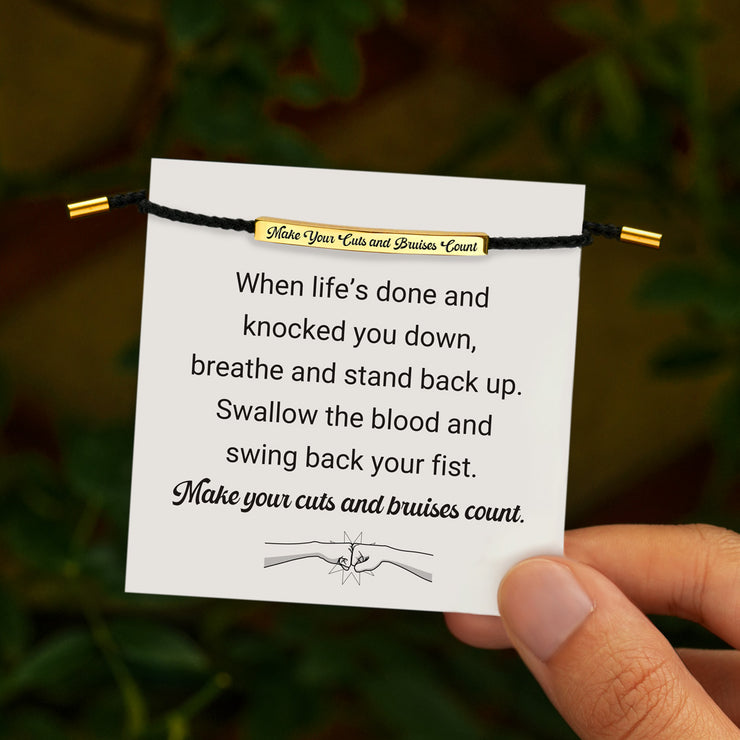 Make Your Cuts and Bruises Count
When life's done and
knocked you down,
breathe and stand back up.
Swallow the blood and
swing back your fist.
Make your cuts and bruises count.